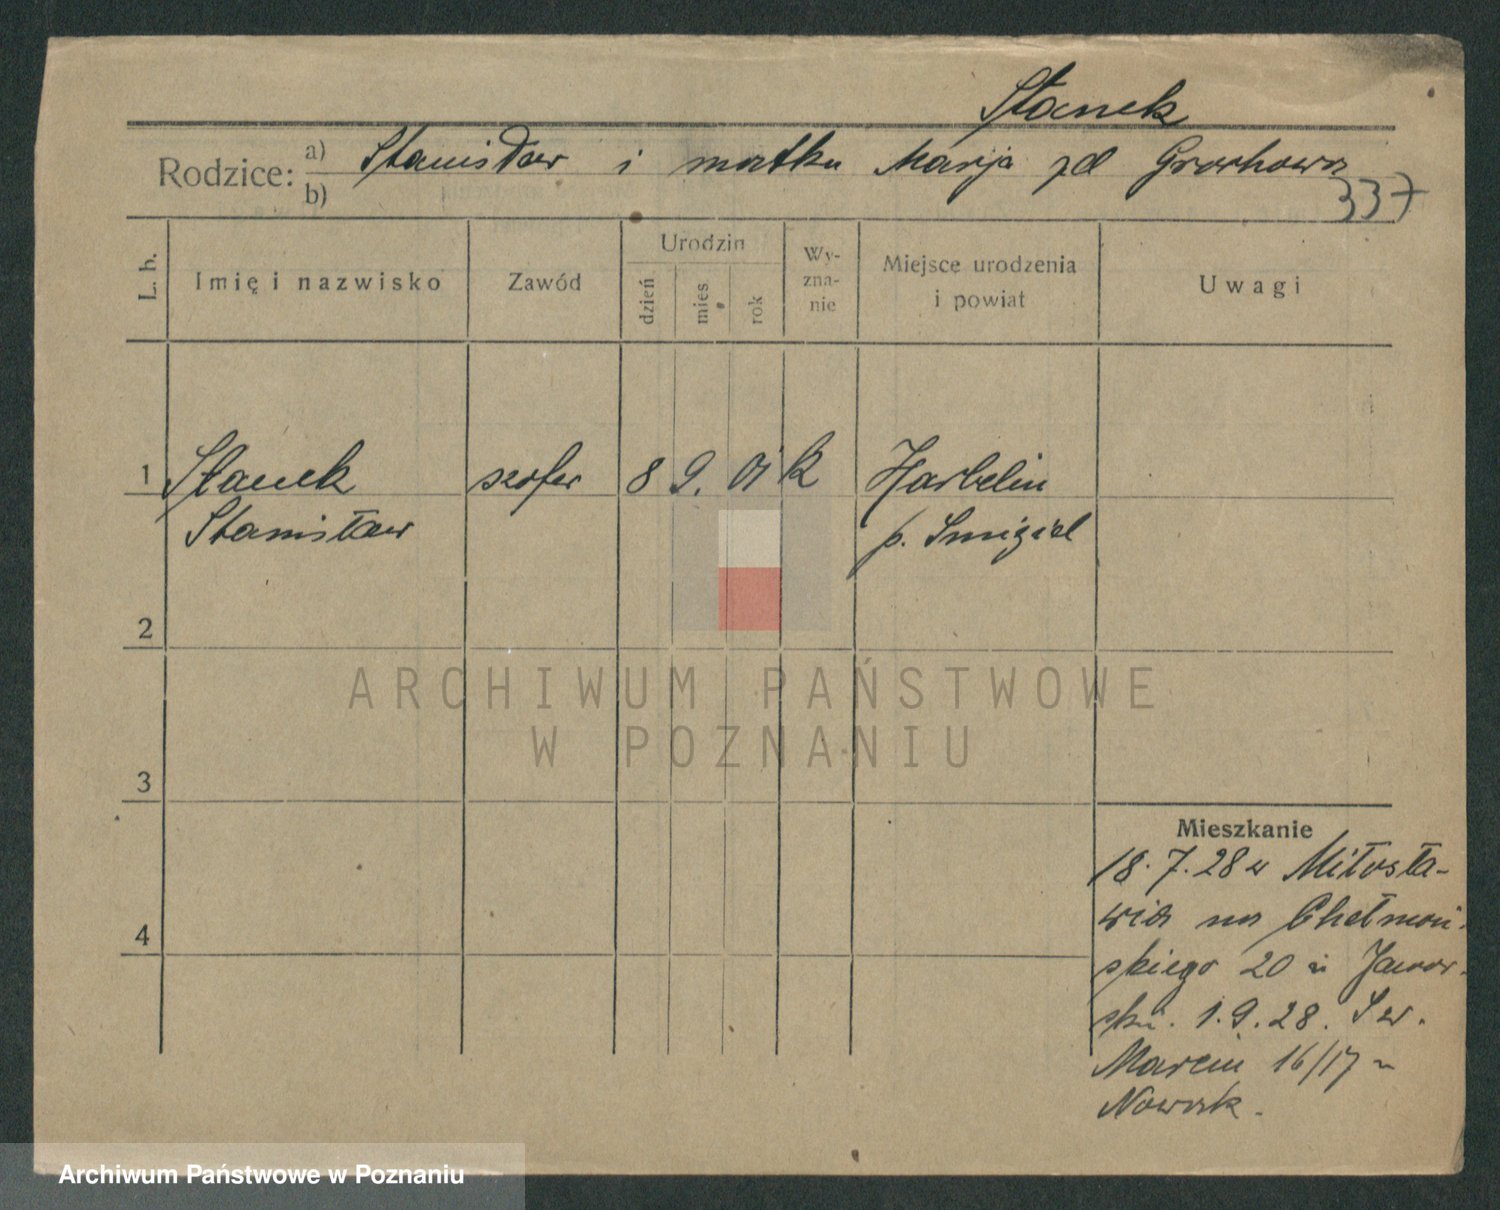 Stanek
Rodzice: a) Stanisław i matka Marja zd Grochowa
b)
337
L. b. Imię i nazwisko Zawód Urodzin dzień mies. rok Wyznanie Miejsce urodzenia i powiat Uwagi
1 Stanek szofer 8 9. 01 k Harbelin
Stanisław p. Smigiel
2
3
4
Mieszkanie
18.7.28 w Miłosła-
wia na Chełmoń-
skiego 20 u Jawor-
ski. 1.9.28. Św.
Marcin 16/17 u
Nowak.
ARCHIWUM PAŃSTWOWE
W POZNANIU
Archiwum Państwowe w Poznaniu